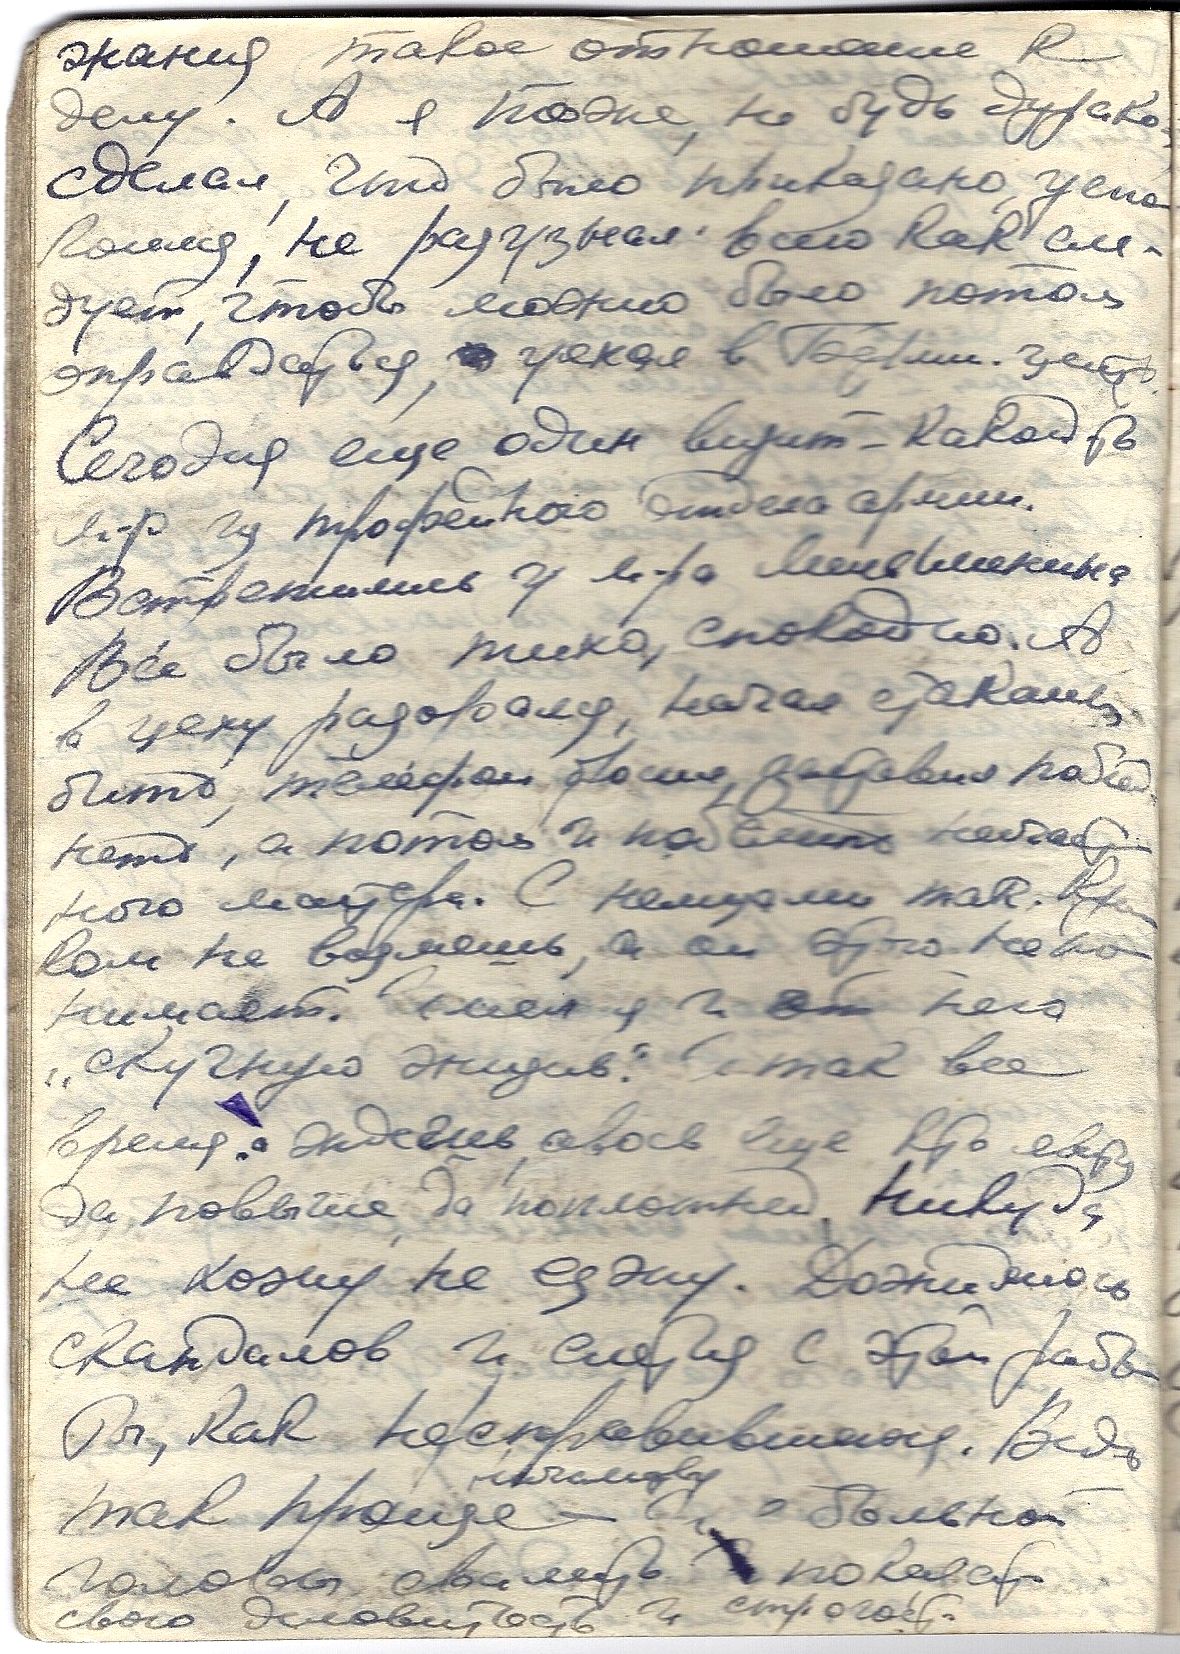 жания такое отношение к
делу. А я тоже, не будь дурако
сделал, что было приказано, успо
коился, не разузнал всего как сле-
дует, чтобы можно было потом
оправдаться, уехал в Берлин. центр.
Сегодня еще один визит – какой-то
м-р из трофейного отдела армии.
Встретились у м-ра
Все было тихо, спокойно. А
в цеху разорался, начал стаканы
бить, телефон бросил, заставил поблед
неть, а потом и несчаст
ного мастера. С немцами так. Кри
ком не возьмешь, а он этого не по
нимает. Имел я и от него
„скучную жизнь". И так все
время. Ждешь, авось еще кто
да повыше, да поплотней. Никуда
не хожу, не езжу. Дожидаюсь
скандалов и снятия с этой рабо
ты, как несправившийся. Ведь
так проще начальству – с больной
головы свалить и показать
свою деловитость и строгость.